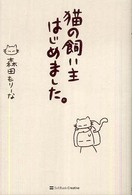 猫の飼い主
はじめました。
森田もりーな
SoftBank Creative